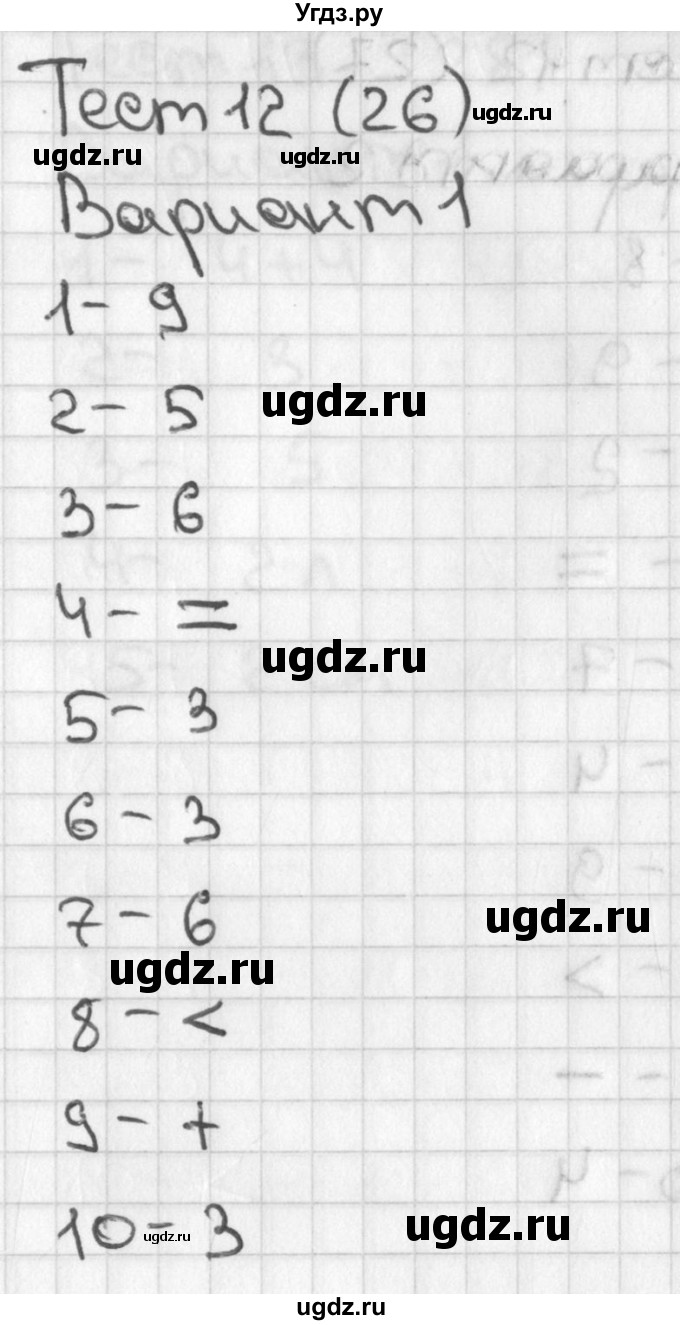 Угдз.ру
Тест 12 (26)
ugdz.ru
ugdz.ru
ugdz.ru
Вариант 1
1 - 9
2 - 5
ugdz.ru
3 - 6
4 - =
ugdz.ru
5 - 3
6 - 3
7 - 6
ugdz.ru
ugdz.ru
8 - <
9 - +
10 - 3
ugdz.ru
ugdz.ru
ugdz.ru